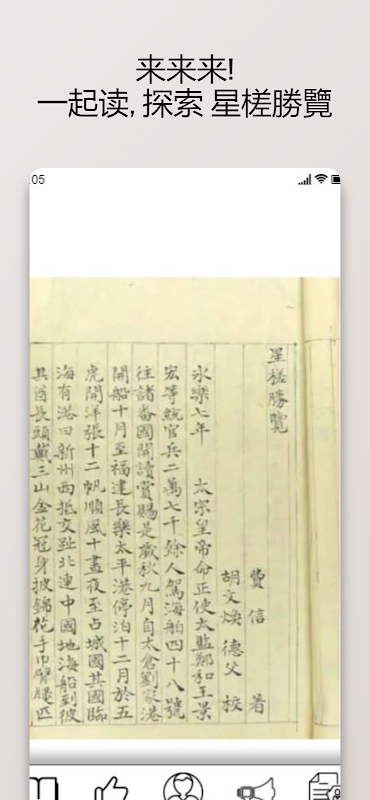 来来来!
一起读, 探索 星槎勝覽
:05
星槎勝覽
費信 著
胡文煥 德父 校
永樂七年 太宗皇帝命正使太監鄭和王景
宏等統官兵二萬七千餘人駕海舶四十八號
往諸番國開讀賞賜是歲秋九月自太倉劉家港
開船十月至福建長樂太平港停泊十二月於五
虎開洋張十二帆順風十晝夜至占城國其國臨
海有港曰新州西抵交趾北連中國地海船到彼
其酋長頭戴三山金花冠身披錦花手巾臂腿四